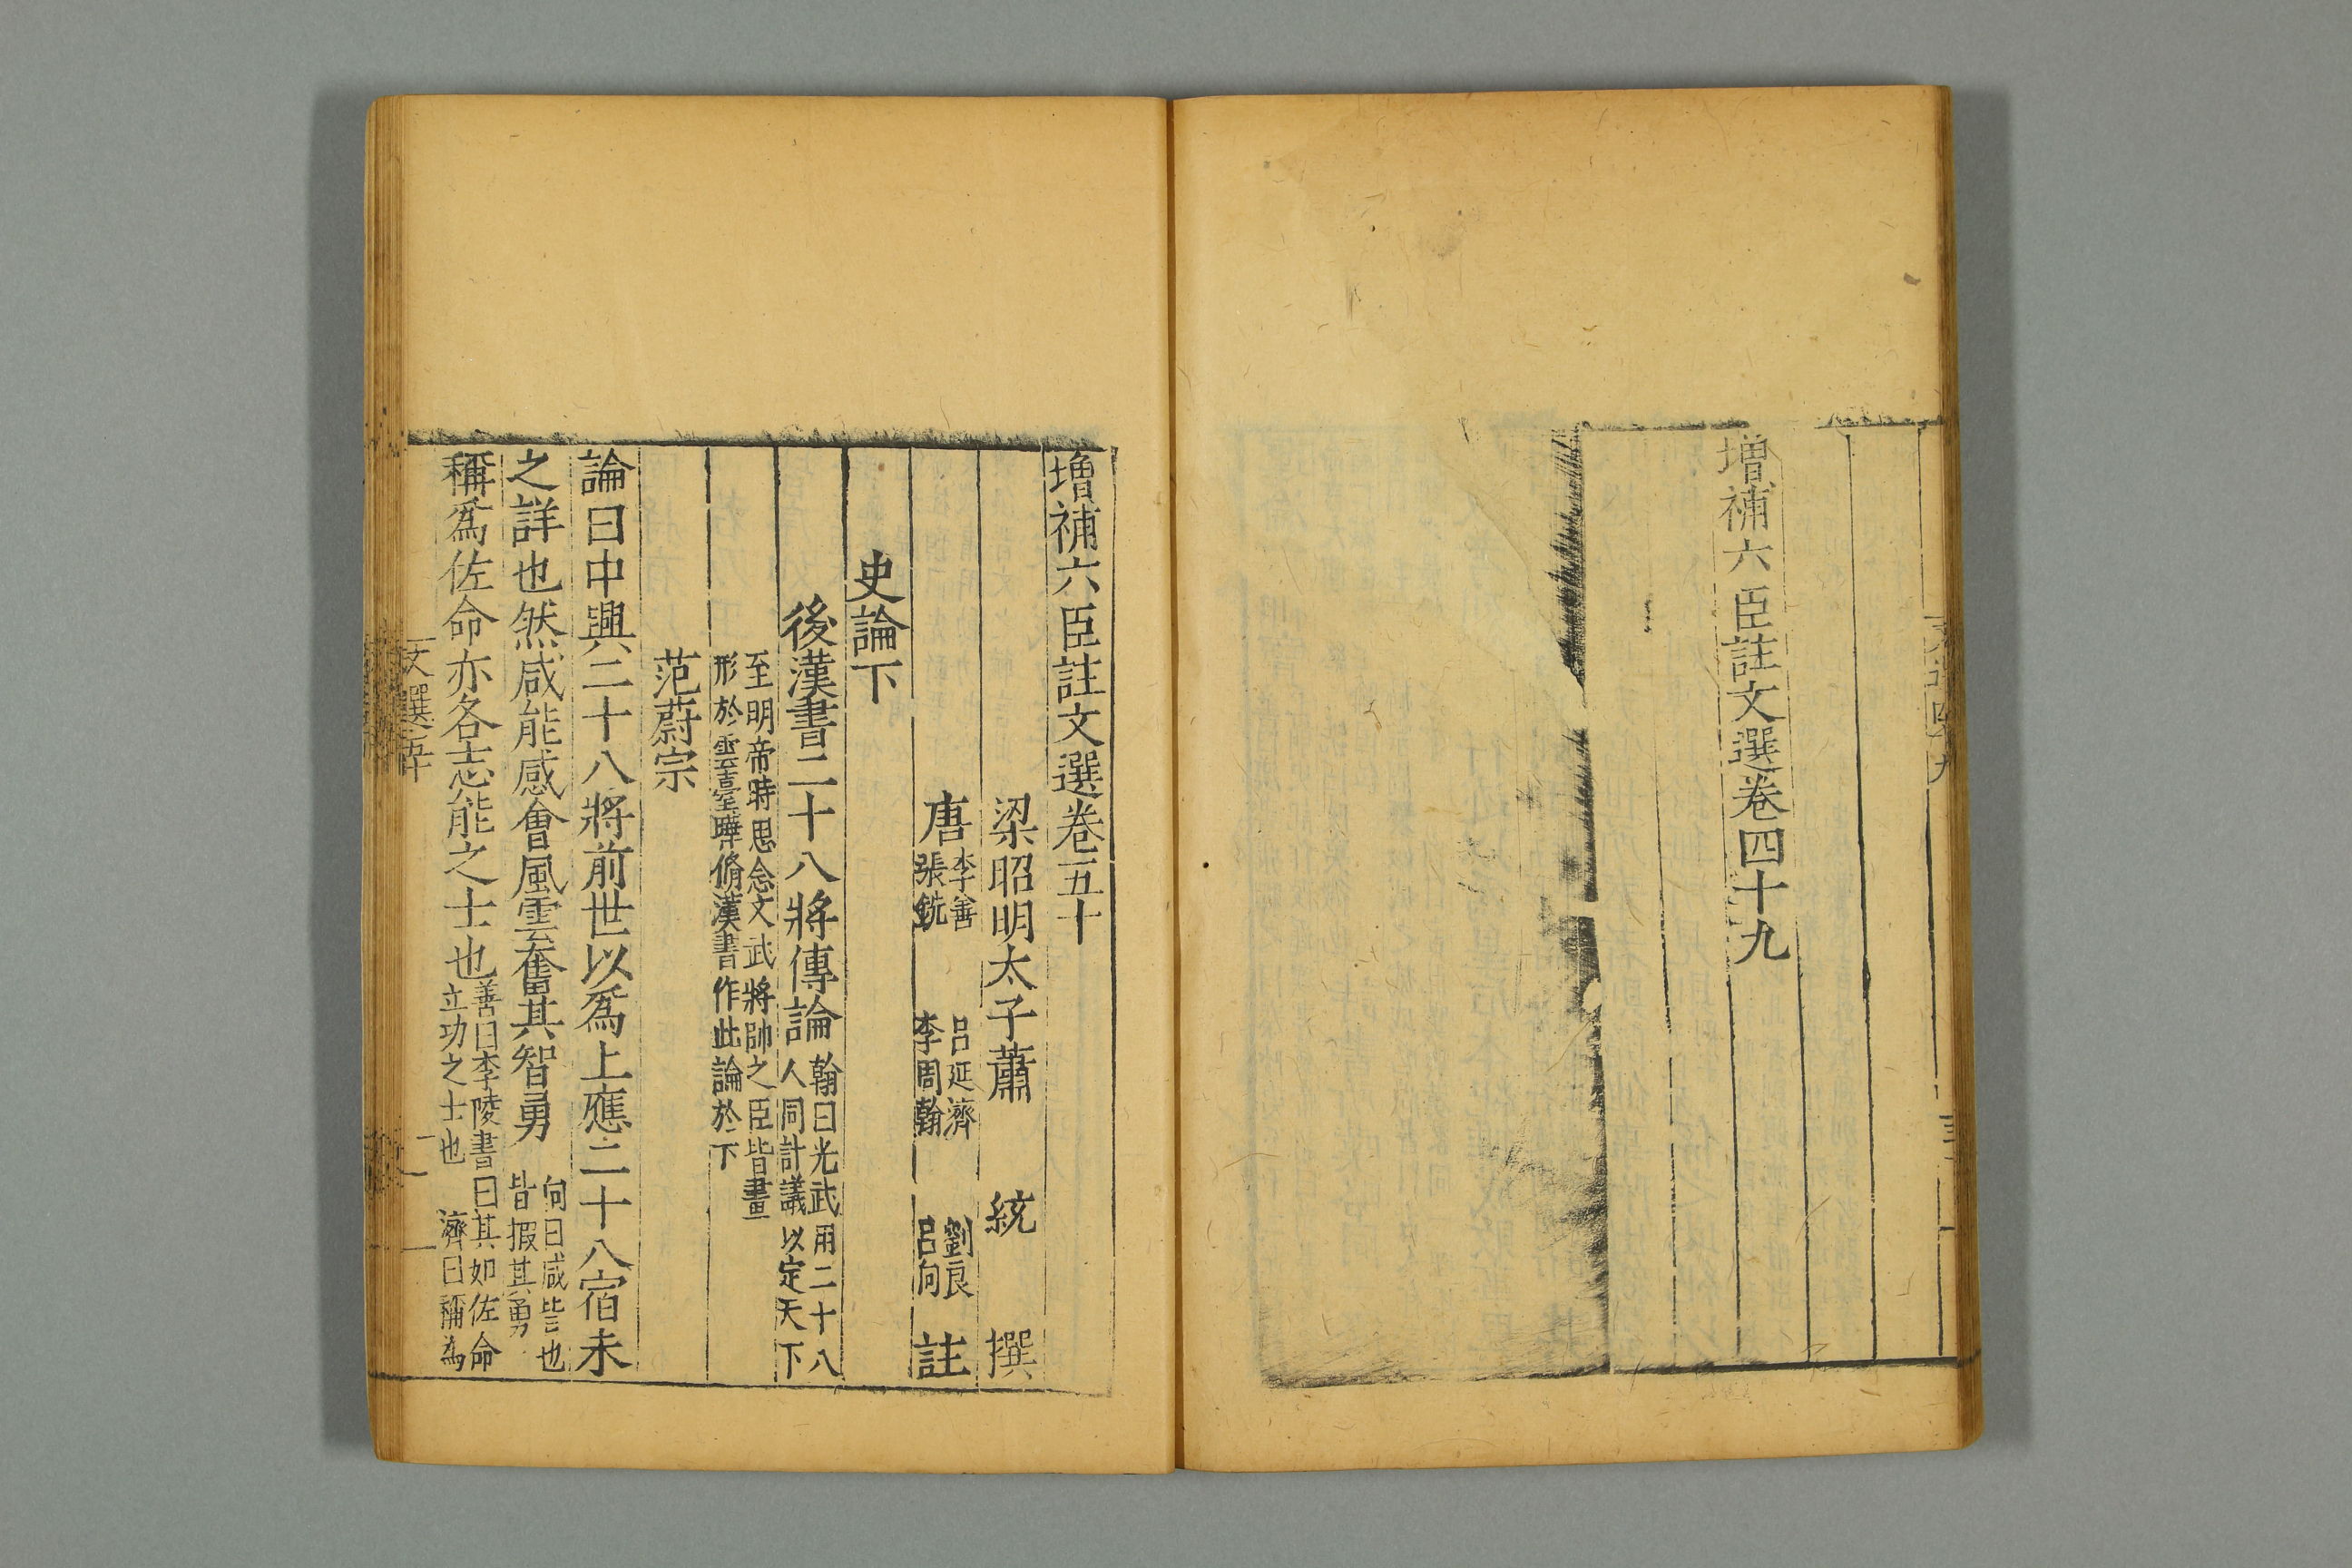 増補六臣註文選卷四十九
増補六臣註文選卷五十
梁昭明太子蕭　統　撰
唐　李善　呂延濟　劉良　註
張銑　李周翰　呂向
史論下
後漢書二十八將傳論　翰曰光武用二十八
人同計議以定天下
至明帝時思念文武將帥之臣皆畫
形於雲臺曄脩漢書作此論於下
范蔚宗
論曰中興二十八將前世以爲上應二十八宿未
之詳也然咸能感會風雲奮其智勇　向曰咸皆也
皆報其勇
稱爲佐命亦各志能之士也　善曰李陵書曰其如佐命
立功之士也　濟曰稱爲
文選五十　一